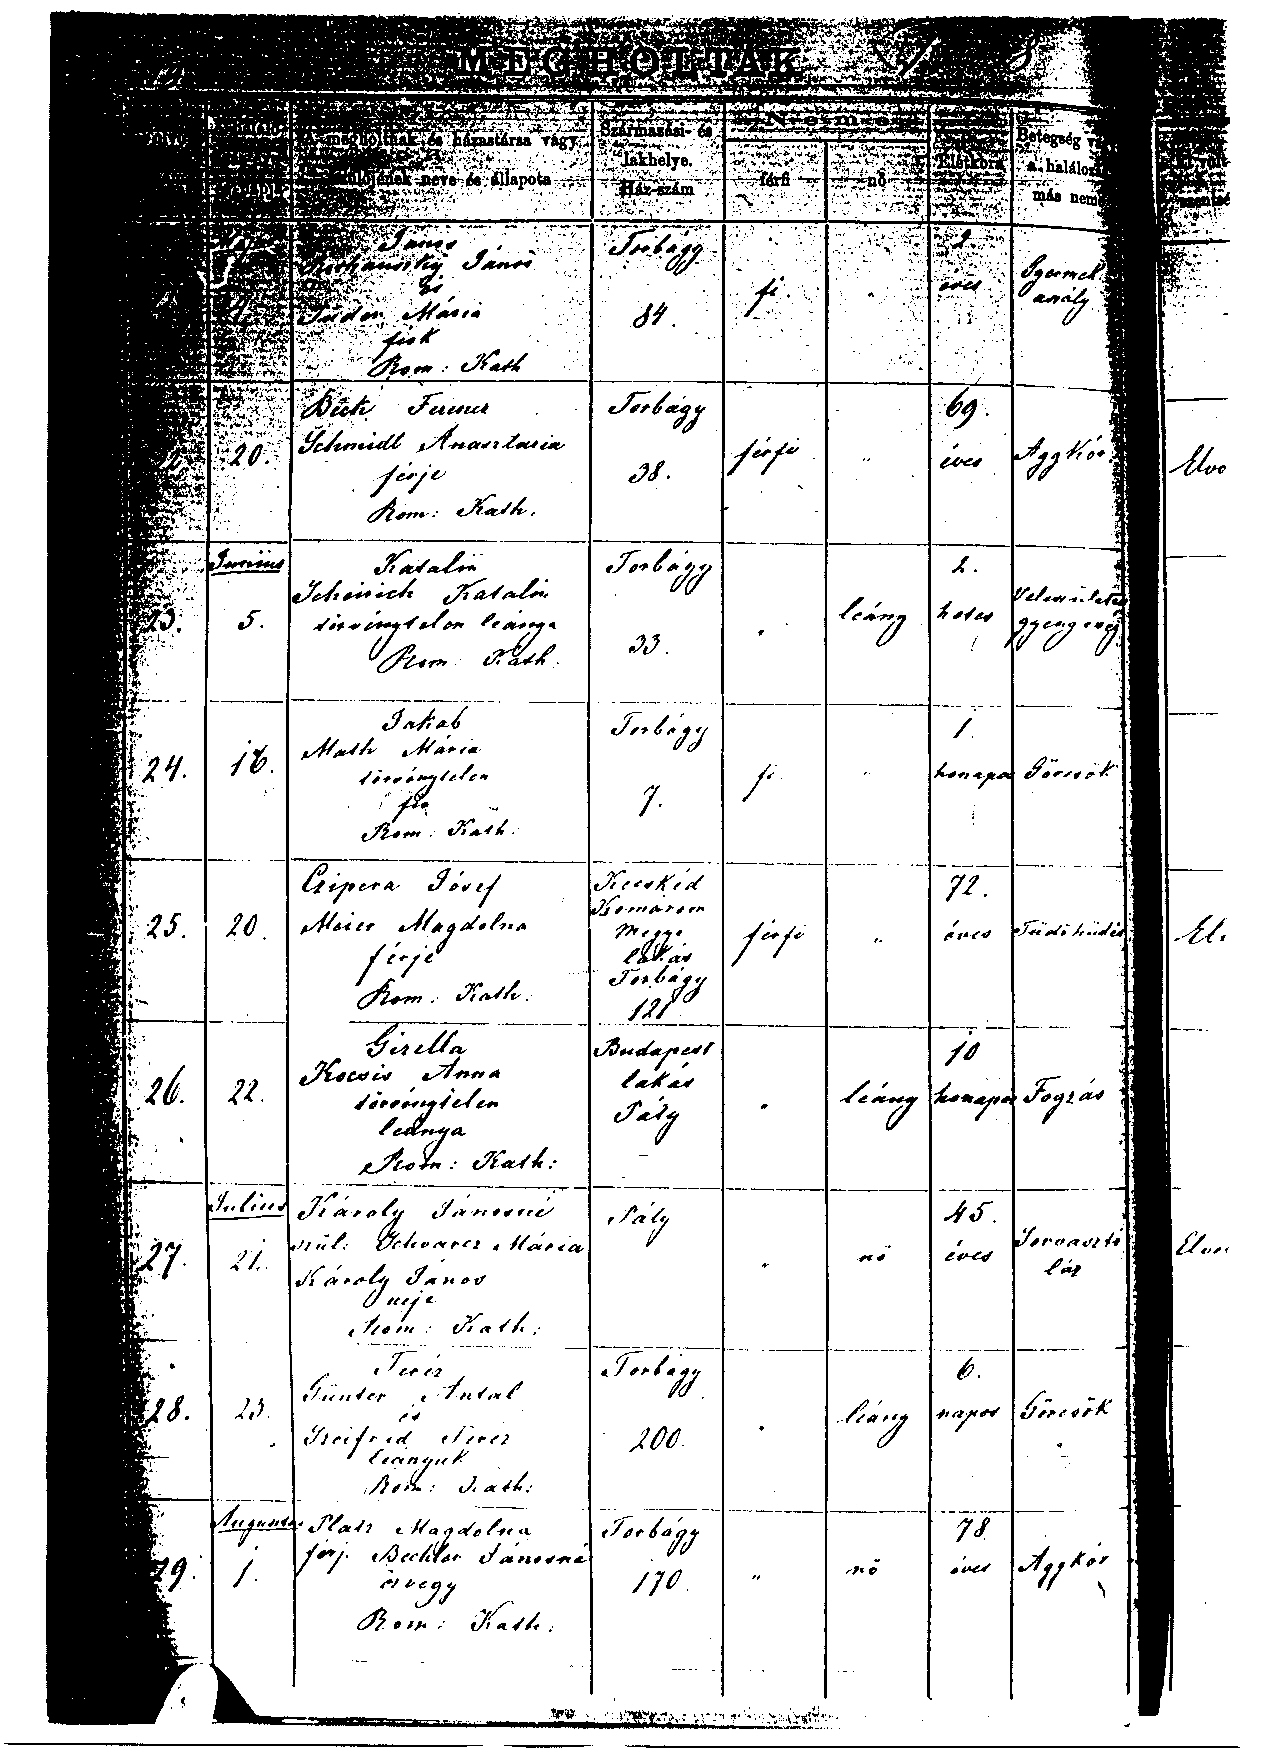 MEGHOLTAK
megholtnak és házastársa vagy
neve és állapota
Származási- és
lakhelye.
Ház-szám
Nem
férfi
nő
Életkora
Betegség
a halálozás
más nem
János
János
és
Mária
fiok
Rom: Kath
Torbágy
84.
fi.
"
2
éves
Gyermek
aszály
20.
Beck Ferencz
Schmidt Anasztazia
férje
Rom: Kath.
Torbágy
38.
férfi
"
69.
éves
Aggkór
Elvo
23.
Junius
5.
Katalin
Katalin
törvénytelen leánya
Rom: Kath.
Torbágy
33.
"
leány
2.
hetes
gyengeség
24.
16.
Jakab
Math Mária
törvénytelen
fia
Rom: Kath:
Torbágy
7.
fi
"
1.
honapos
Görcsök
25.
20.
Czipera József
Meier Magdolna
férje
Rom: Kath:
Kecskéd
Komárom
Megye
lakás
Torbágy
121
férfi
"
72.
éves
Tüdőhüdés
El.
26.
22.
Gizella
Kocsis Anna
törvénytelen
leánya
Rom: Kath:
Budapest
lakás
Páty
"
leány
10
honapos
Fogzás
27.
Julius
21.
Károly Jánosné
szül: Schvarcz Mária
Károly János
neje
Rom: Kath:
Páty
"
nő
45.
éves
Sorvasztó
láz
Elvo
28.
23.
Teréz
Günter Antal
és
Teréz
leányuk
Rom: Kath:
Torbágy
200.
"
leány
6.
napos
Görcsök
29.
Augustus
1.
Platz Magdolna
férj. Bechler Jánosné
özvegy
Rom: Kath:
Torbágy
170.
"
nő
78.
éves
Aggkór